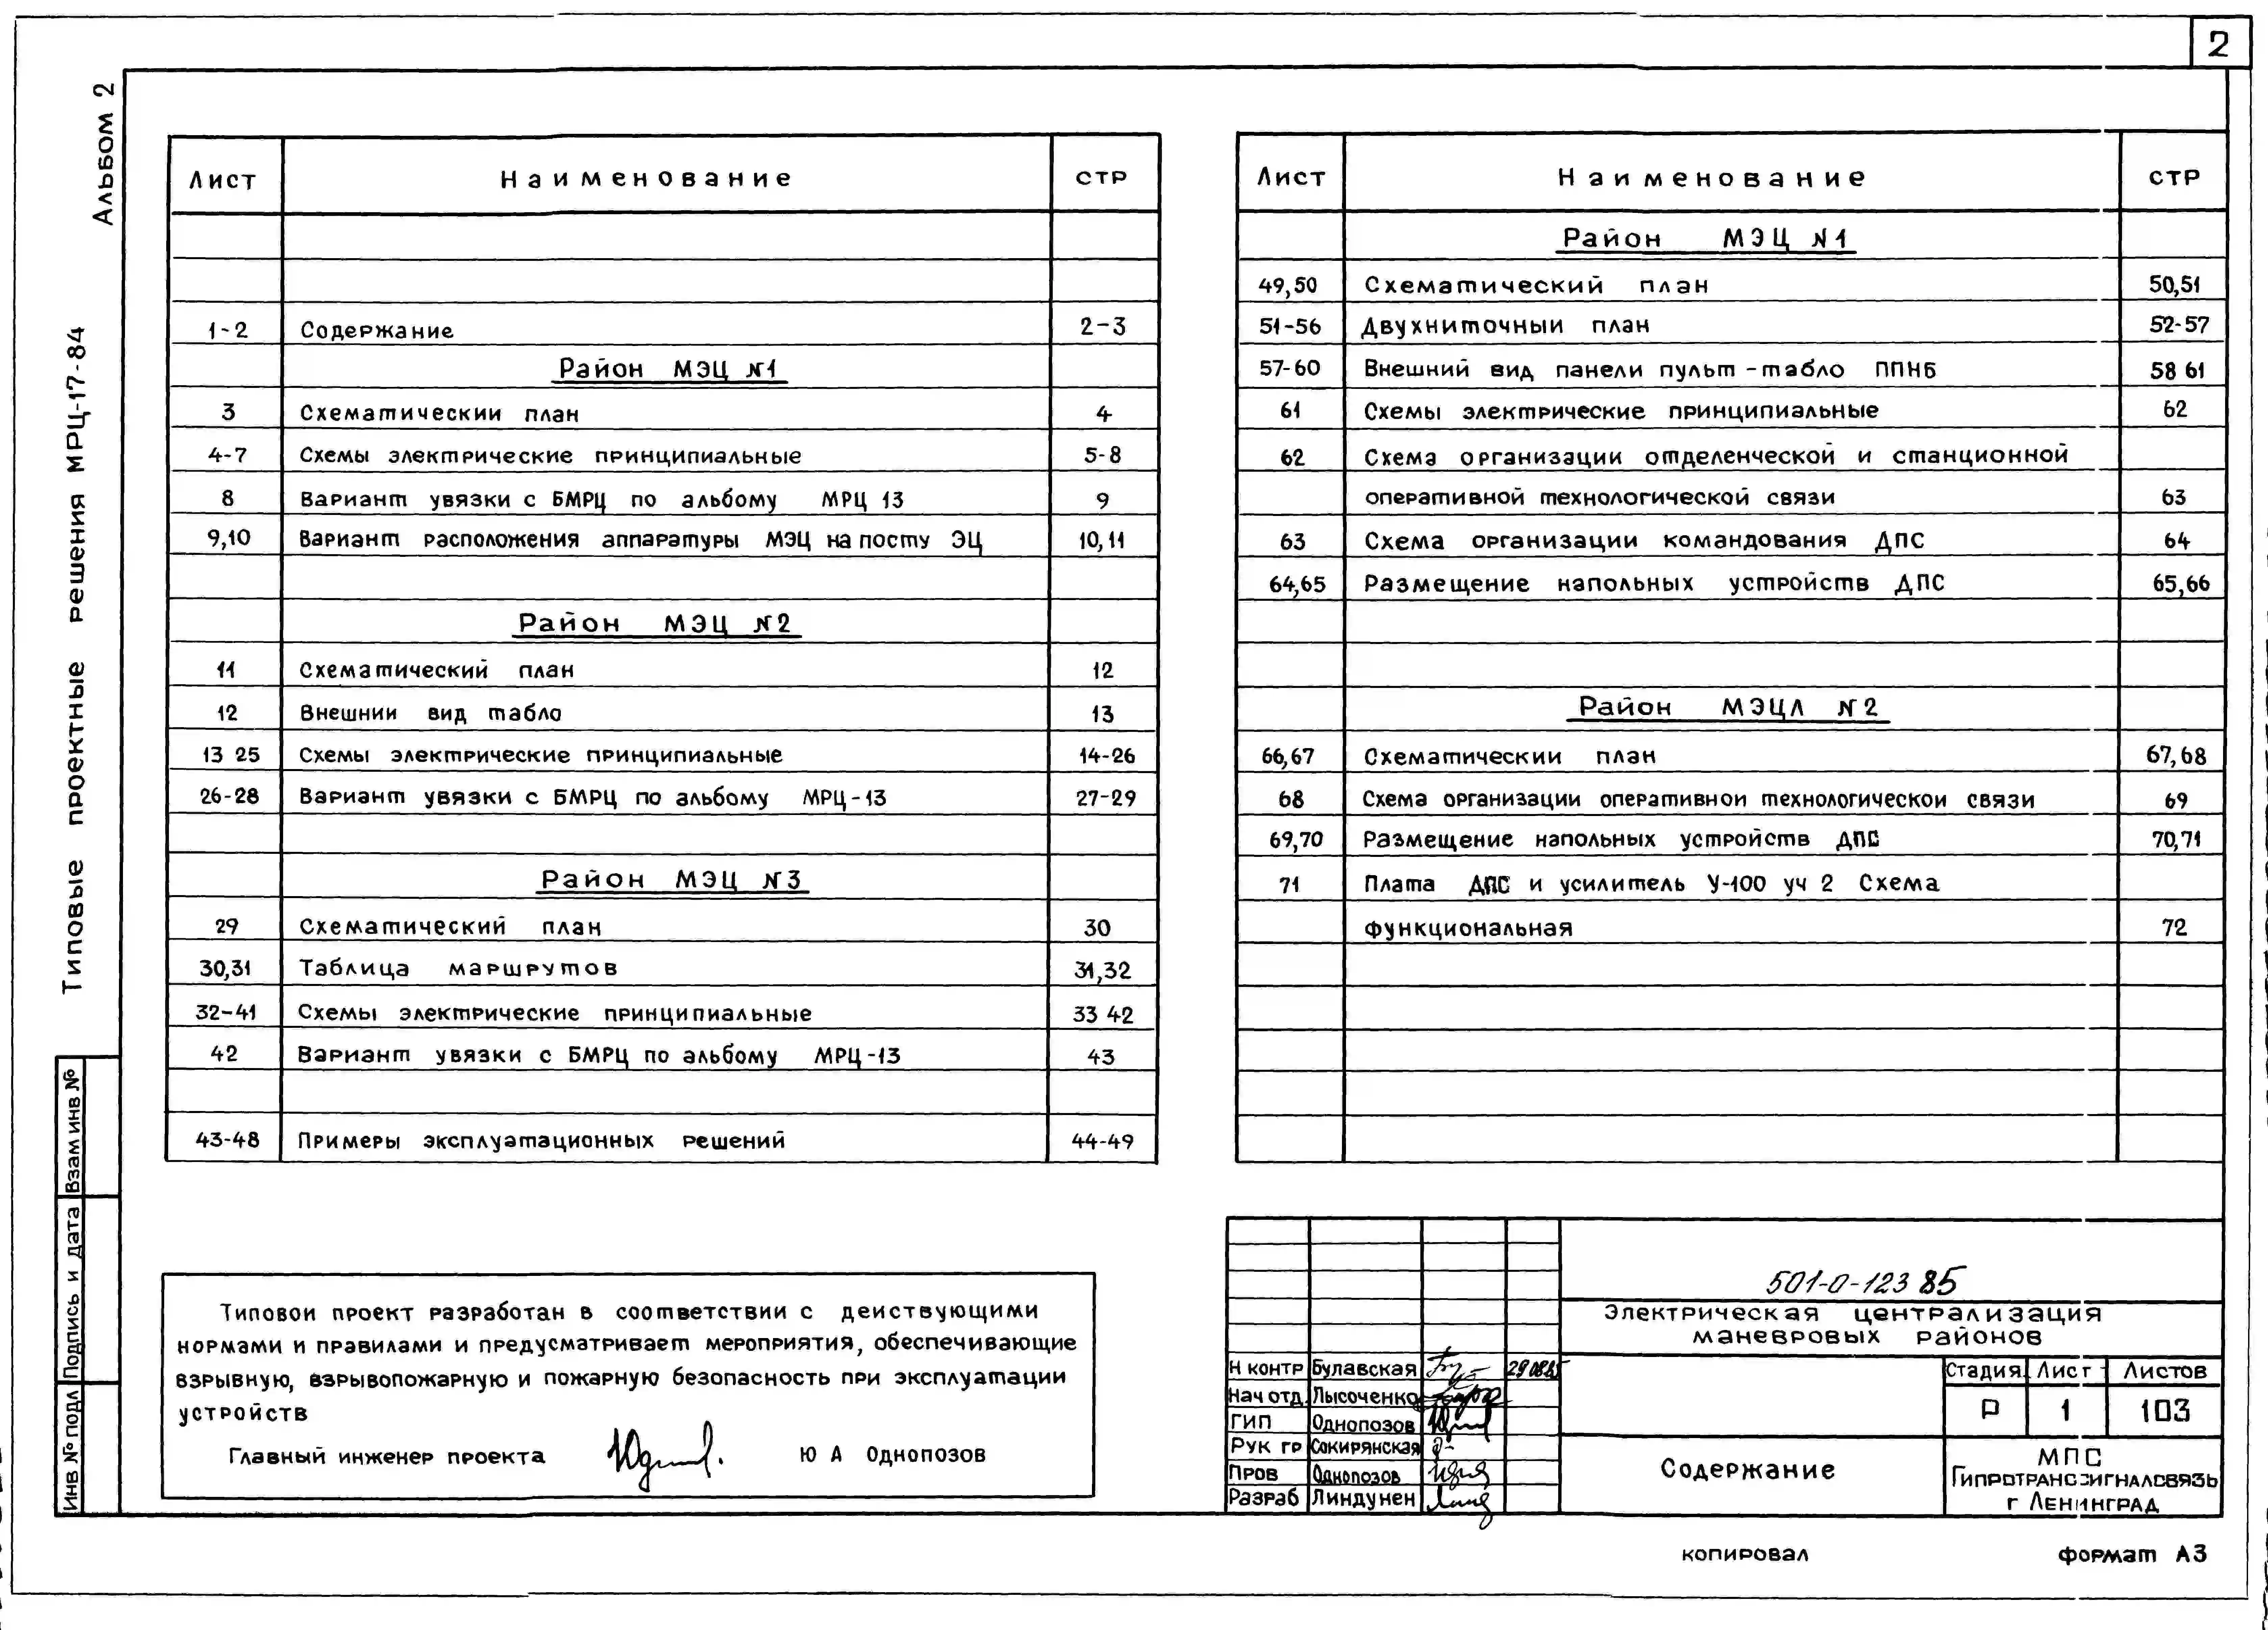 2
Альбом 2
Типовые проектные решения МРЦ-17-84
Лист Наименование стр
1-2 Содержание 2-3
Район МЭЦ №1
3 Схематическии план 4
4-7 Схемы электрические принципиальные 5-8
8 Вариант увязки с БМРЦ по альбому МРЦ 13 9
9,10 Вариант расположения аппаратуры МЭЦ на посту ЭЦ 10,11
Район МЭЦ №2
11 Схематический план 12
12 Внешнии вид табло 13
13 25 Схемы электрические принципиальные 14-26
26-28 Вариант увязки с БМРЦ по альбому МРЦ-13 27-29
Район МЭЦ №3
29 Схематический план 30
30,31 Таблица маршрутов 31,32
32-41 Схемы электрические принципиальные 33 42
42 Вариант увязки с БМРЦ по альбому МРЦ-13 43
43-48 Примеры эксплуатационных решений 44-49
Лист Наименование стр
Район МЭЦ №1
49,50 Схематический план 50,51
51-56 Двухниточныи план 52-57
57-60 Внешний вид панели пульт-табло ППНБ 58 61
61 Схемы электрические принципиальные 62
62 Схема организации отделенческой и станционной
оперативной технологической связи 63
63 Схема организации командования ДПС 64
64,65 Размещение напольных устройств ДПС 65,66
Район МЭЦЛ №2
66,67 Схематическии план 67,68
68 Схема организации оперативнои технологическои связи 69
69,70 Размещение напольных устройств ДПС 70,71
71 Плата ДПС и усилитель У-100 уч 2 Схема
функциональная 72
Типовои проект разработан в соответствии с деиствующими
нормами и правилами и предусматривает мероприятия, обеспечивающие
взрывную, взрывопожарную и пожарную безопасность при эксплуатации
устройств
Главный инженер проекта Ю А Однопозов
501-0-123 85
Электрическая централизация
маневровых районов
Н контр Булавская 290885
Нач отд Лысоченко
ГИП Однопозов
Рук гр Сокирянская
Пров Однопозов
Разраб Линдунен
Стадия Лист Листов
Р 1 103
Содержание
МПС
Гипротранссигналсвязь
г Ленинград
Взам инв №
Подпись и дата
Инв № подл
копировал
формат А3